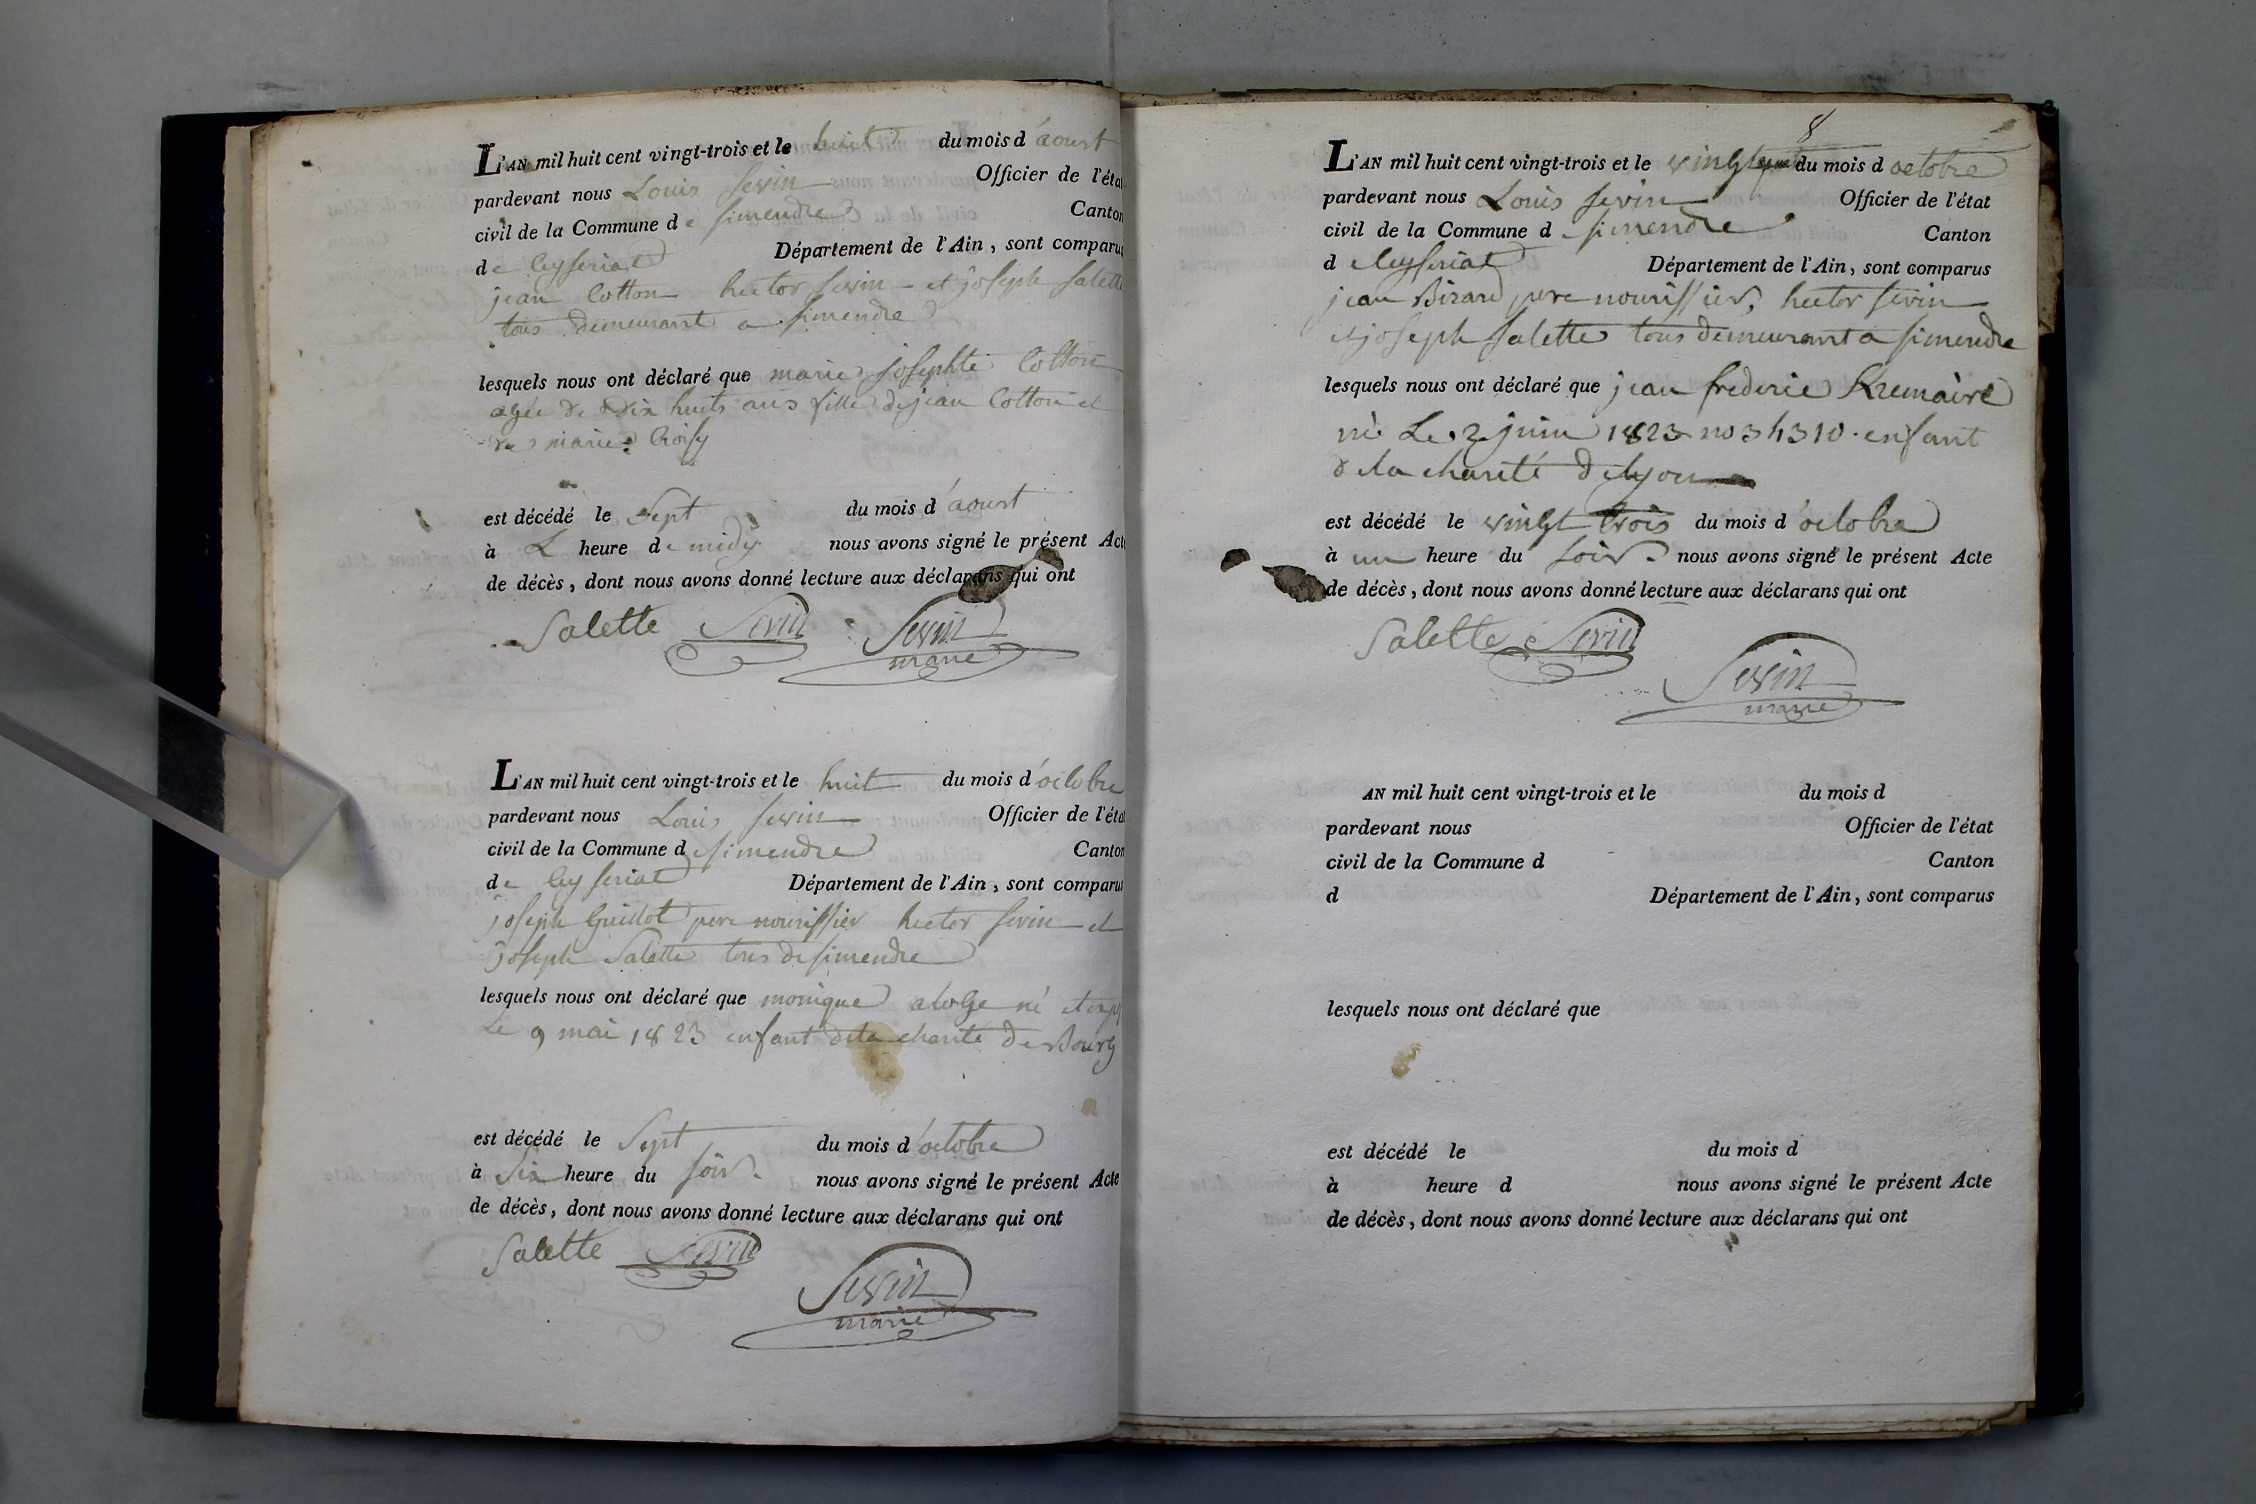 L'AN mil huit cent vingt-trois et le huit du mois d'aoust
pardevant nous Louis Sevin Officier de l'état
civil de la Commune de Simendre Canton
de Ceyseriat Département de l'Ain, sont comparus
jean Cotton hector Sevin et joseph Salette
tous demeurant a Simendre
lesquels nous ont déclaré que marie josephte Cotton
agée de dix huits ans fille de jean Cotton et
de marie Croisy
est décédé le Sept du mois d'aoust
à L heure de midy nous avons signé le présent Acte
de décès, dont nous avons donné lecture aux déclarans qui ont
Salette Sevin Sevin
maire
L'AN mil huit cent vingt-trois et le huit du mois d'octobre
pardevant nous Louis Sevin Officier de l'état
civil de la Commune de Simendre Canton
de Ceyseriat Département de l'Ain, sont comparus
joseph Guillot pere nourissier hector Sevin et
joseph Salette tous de Simendre
lesquels nous ont déclaré que monique né
Le 9 mai 1823 enfant de la charité de Bourg
est décédé le Sept du mois d'octobre
à Six heure du soir nous avons signé le présent Acte
de décès, dont nous avons donné lecture aux déclarans qui ont
Salette Sevin
Sevin
maire
8
L'AN mil huit cent vingt-trois et le vingt du mois d octobre
pardevant nous Louis Sevin Officier de l'état
civil de la Commune de Simendre Canton
de Ceyseriat Département de l'Ain, sont comparus
jean Bizard pere nourissier, hector Sevin
et joseph Salette tous demeurant a Simendre
lesquels nous ont déclaré que jean frederic Kremaire
né Le 2 juin 1823 no 34310 enfant
de la charité de lyon
est décédé le vingt trois du mois d'octobre
à un heure du soir nous avons signé le présent Acte
de décès, dont nous avons donné lecture aux déclarans qui ont
Salette Sevin
Sevin
maire
AN mil huit cent vingt-trois et le du mois d
pardevant nous Officier de l'état
civil de la Commune d Canton
d Département de l'Ain, sont comparus
lesquels nous ont déclaré que
est décédé le du mois d
à heure d nous avons signé le présent Acte
de décès, dont nous avons donné lecture aux déclarans qui ont